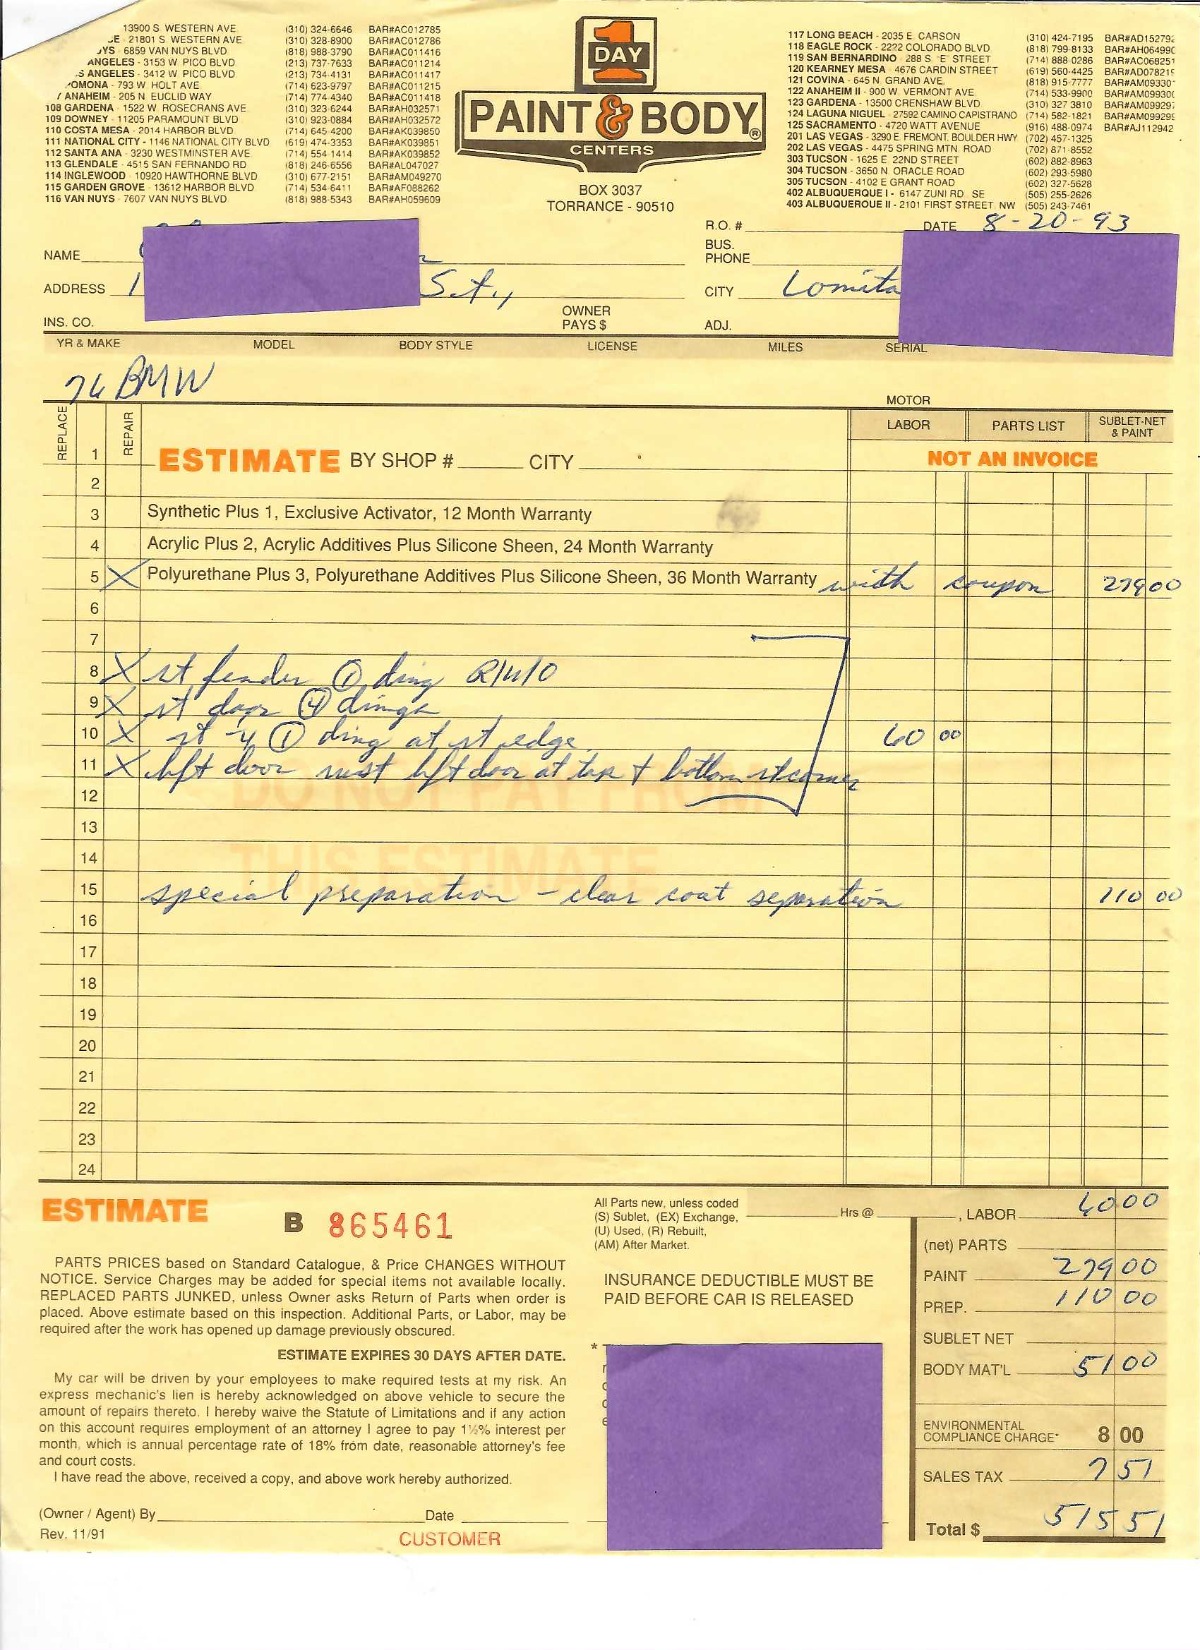 13900 S. WESTERN AVE. (310) 324-6646 BAR#AC012785
21801 S. WESTERN AVE (310) 328-8900 BAR#AC012786
6859 VAN NUYS BLVD (818) 988-3790 BAR#AC011416
ANGELES - 3153 W. PICO BLVD (213) 737-7633 BAR#AC011214
ANGELES - 3412 W. PICO BLVD (213) 734-4131 BAR#AC011417
POMONA - 793 W. HOLT AVE (714) 623-9797 BAR#AC011215
7 ANAHEIM - 205 N. EUCLID WAY (714) 774-4340 BAR#AC011418
108 GARDENA - 1522 W. ROSECRANS AVE (310) 323-6244 BAR#AH032571
109 DOWNEY - 11205 PARAMOUNT BLVD (310) 923-0884 BAR#AH032572
110 COSTA MESA - 2014 HARBOR BLVD (714) 645-4200 BAR#AK039850
111 NATIONAL CITY - 1146 NATIONAL CITY BLVD (619) 474-3353 BAR#AK039851
112 SANTA ANA - 3230 WESTMINSTER AVE (714) 554-1414 BAR#AK039852
113 GLENDALE - 4515 SAN FERNANDO RD (818) 246-6556 BAR#AL047027
114 INGLEWOOD - 10920 HAWTHORNE BLVD (310) 677-2151 BAR#AM049270
115 GARDEN GROVE - 13612 HARBOR BLVD (714) 534-6411 BAR#AF088262
116 VAN NUYS - 7607 VAN NUYS BLVD (818) 988-5343 BAR#AH059609
1 DAY
PAINT & BODY®
CENTERS
BOX 3037
TORRANCE - 90510
117 LONG BEACH - 2035 E. CARSON (310) 424-7195 BAR#AD15279
118 EAGLE ROCK - 2222 COLORADO BLVD (818) 799-8133 BAR#AH06499
119 SAN BERNARDINO - 288 S. "E" STREET (714) 888-0286 BAR#AC068251
120 KEARNEY MESA - 4676 CARDIN STREET (619) 560-4425 BAR#AD07821
121 COVINA - 645 N. GRAND AVE. (818) 915-7777 BAR#AM09330
122 ANAHEIM II - 900 W. VERMONT AVE (714) 533-9900 BAR#AM09930
123 GARDENA - 13500 CRENSHAW BLVD. (310) 327 3810 BAR#AM09929
124 LAGUNA NIGUEL - 27592 CAMINO CAPISTRANO (714) 582-1821 BAR#AM09929
125 SACRAMENTO - 4720 WATT AVENUE (916) 488-0974 BAR#AJ112942
201 LAS VEGAS - 3290 E. FREMONT, BOULDER HWY (702) 457-1325
202 LAS VEGAS - 4475 SPRING MTN. ROAD (702) 871-8552
303 TUCSON - 1625 E. 22ND STREET (602) 882-8963
304 TUCSON - 3650 N. ORACLE ROAD (602) 293-5980
305 TUCSON - 4102 E GRANT ROAD (602) 327-5628
402 ALBUQUERQUE I - 6147 ZUNI RD. SE (505) 255-2626
403 ALBUQUERQUE II - 2101 FIRST STREET. NW (505) 243-7461
R.O. # DATE 8-20-93
NAME BUS. PHONE
ADDRESS 1 St., CITY Lomita
INS. CO. OWNER PAYS $ ADJ.
YR & MAKE MODEL BODY STYLE LICENSE MILES SERIAL
76 BMW
MOTOR
REPLACE REPAIR LABOR PARTS LIST SUBLET-NET & PAINT
1 ESTIMATE BY SHOP # CITY NOT AN INVOICE
2
3 Synthetic Plus 1, Exclusive Activator, 12 Month Warranty
4 Acrylic Plus 2, Acrylic Additives Plus Silicone Sheen, 24 Month Warranty
5 X Polyurethane Plus 3, Polyurethane Additives Plus Silicone Sheen, 36 Month Warranty with coupon 279 00
6
7
8 X rt fender ① ding
9 X rt door ④ dings
10 X rt ① ding at rt edge 60 00
11 X left door rust left door at top + bottom rt corner
12 DO NOT PAY FROM
13
14 THIS ESTIMATE
15 special preparation - clear coat separation 110 00
16
17
18
19
20
21
22
23
24
ESTIMATE B 865461
PARTS PRICES based on Standard Catalogue, & Price CHANGES WITHOUT
NOTICE. Service Charges may be added for special items not available locally.
REPLACED PARTS JUNKED, unless Owner asks Return of Parts when order is
placed. Above estimate based on this inspection. Additional Parts, or Labor, may be
required after the work has opened up damage previously obscured.
ESTIMATE EXPIRES 30 DAYS AFTER DATE.
My car will be driven by your employees to make required tests at my risk. An
express mechanic's lien is hereby acknowledged on above vehicle to secure the
amount of repairs thereto. I hereby waive the Statute of Limitations and if any action
on this account requires employment of an attorney I agree to pay 1½% interest per
month, which is annual percentage rate of 18% from date, reasonable attorney's fee
and court costs.
I have read the above, received a copy, and above work hereby authorized.
(Owner / Agent) By Date
Rev. 11/91 CUSTOMER
All Parts new, unless coded
(S) Sublet, (EX) Exchange,
(U) Used, (R) Rebuilt,
(AM) After Market.
INSURANCE DEDUCTIBLE MUST BE
PAID BEFORE CAR IS RELEASED
*
Hrs @ , LABOR 60 00
(net) PARTS
PAINT 279 00
PREP. 110 00
SUBLET NET
BODY MAT'L 51 00
ENVIRONMENTAL COMPLIANCE CHARGE* 8 00
SALES TAX 7 51
Total $ 515 51